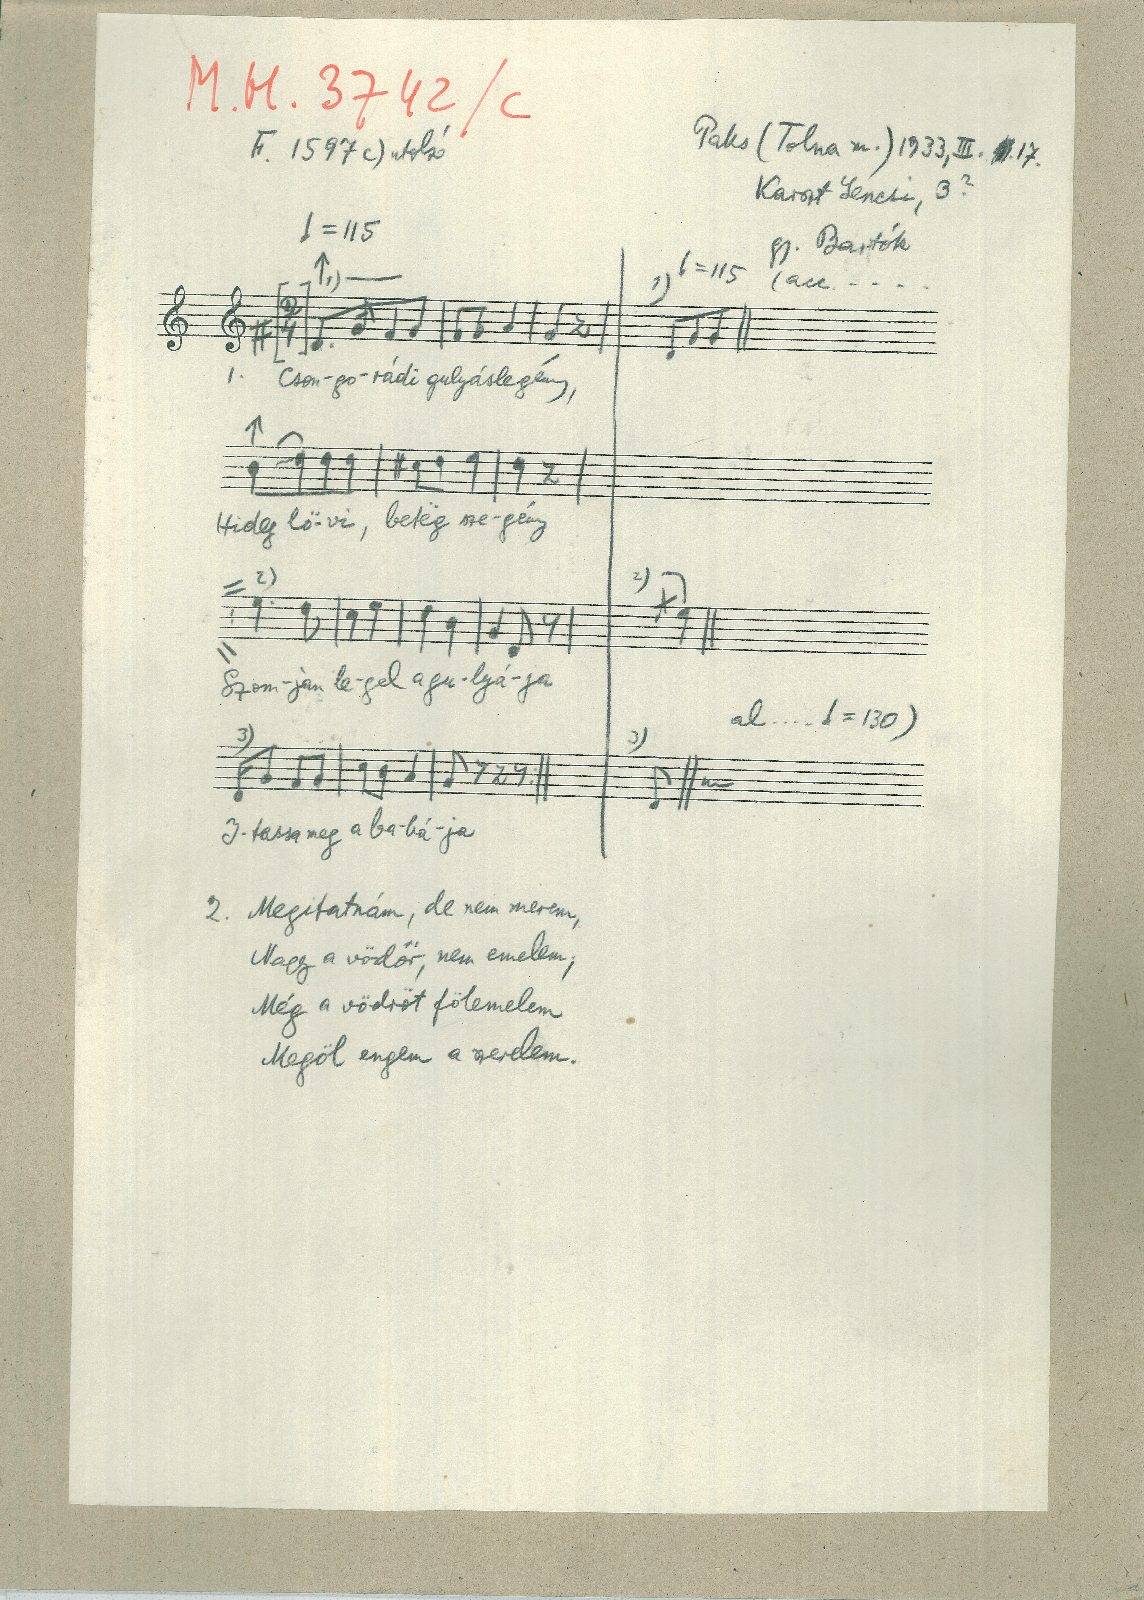 M.H. 3742/c
F. 1597 c) utolsó
Paks (Tolna m.) 1933, III. 17.
Karort Lencsi, 3?
gy. Bartók
♩=115
1) ♩=115 (acc. - - - -
1)
1. Cson-go-rádi gulyáslegény,
Hideg lö-vi, beteg sze-gény
2)
2)
Szom-jan le-gel a gu-lyá-ja
al..... ♩=130)
3)
3)
I-tassa meg a ba-bá-ja
2. Megitatnám, de nem merem,
Nagy a vödör, nem emelem;
Még a vödröt fölemelem
Megöl engem a szerelem.